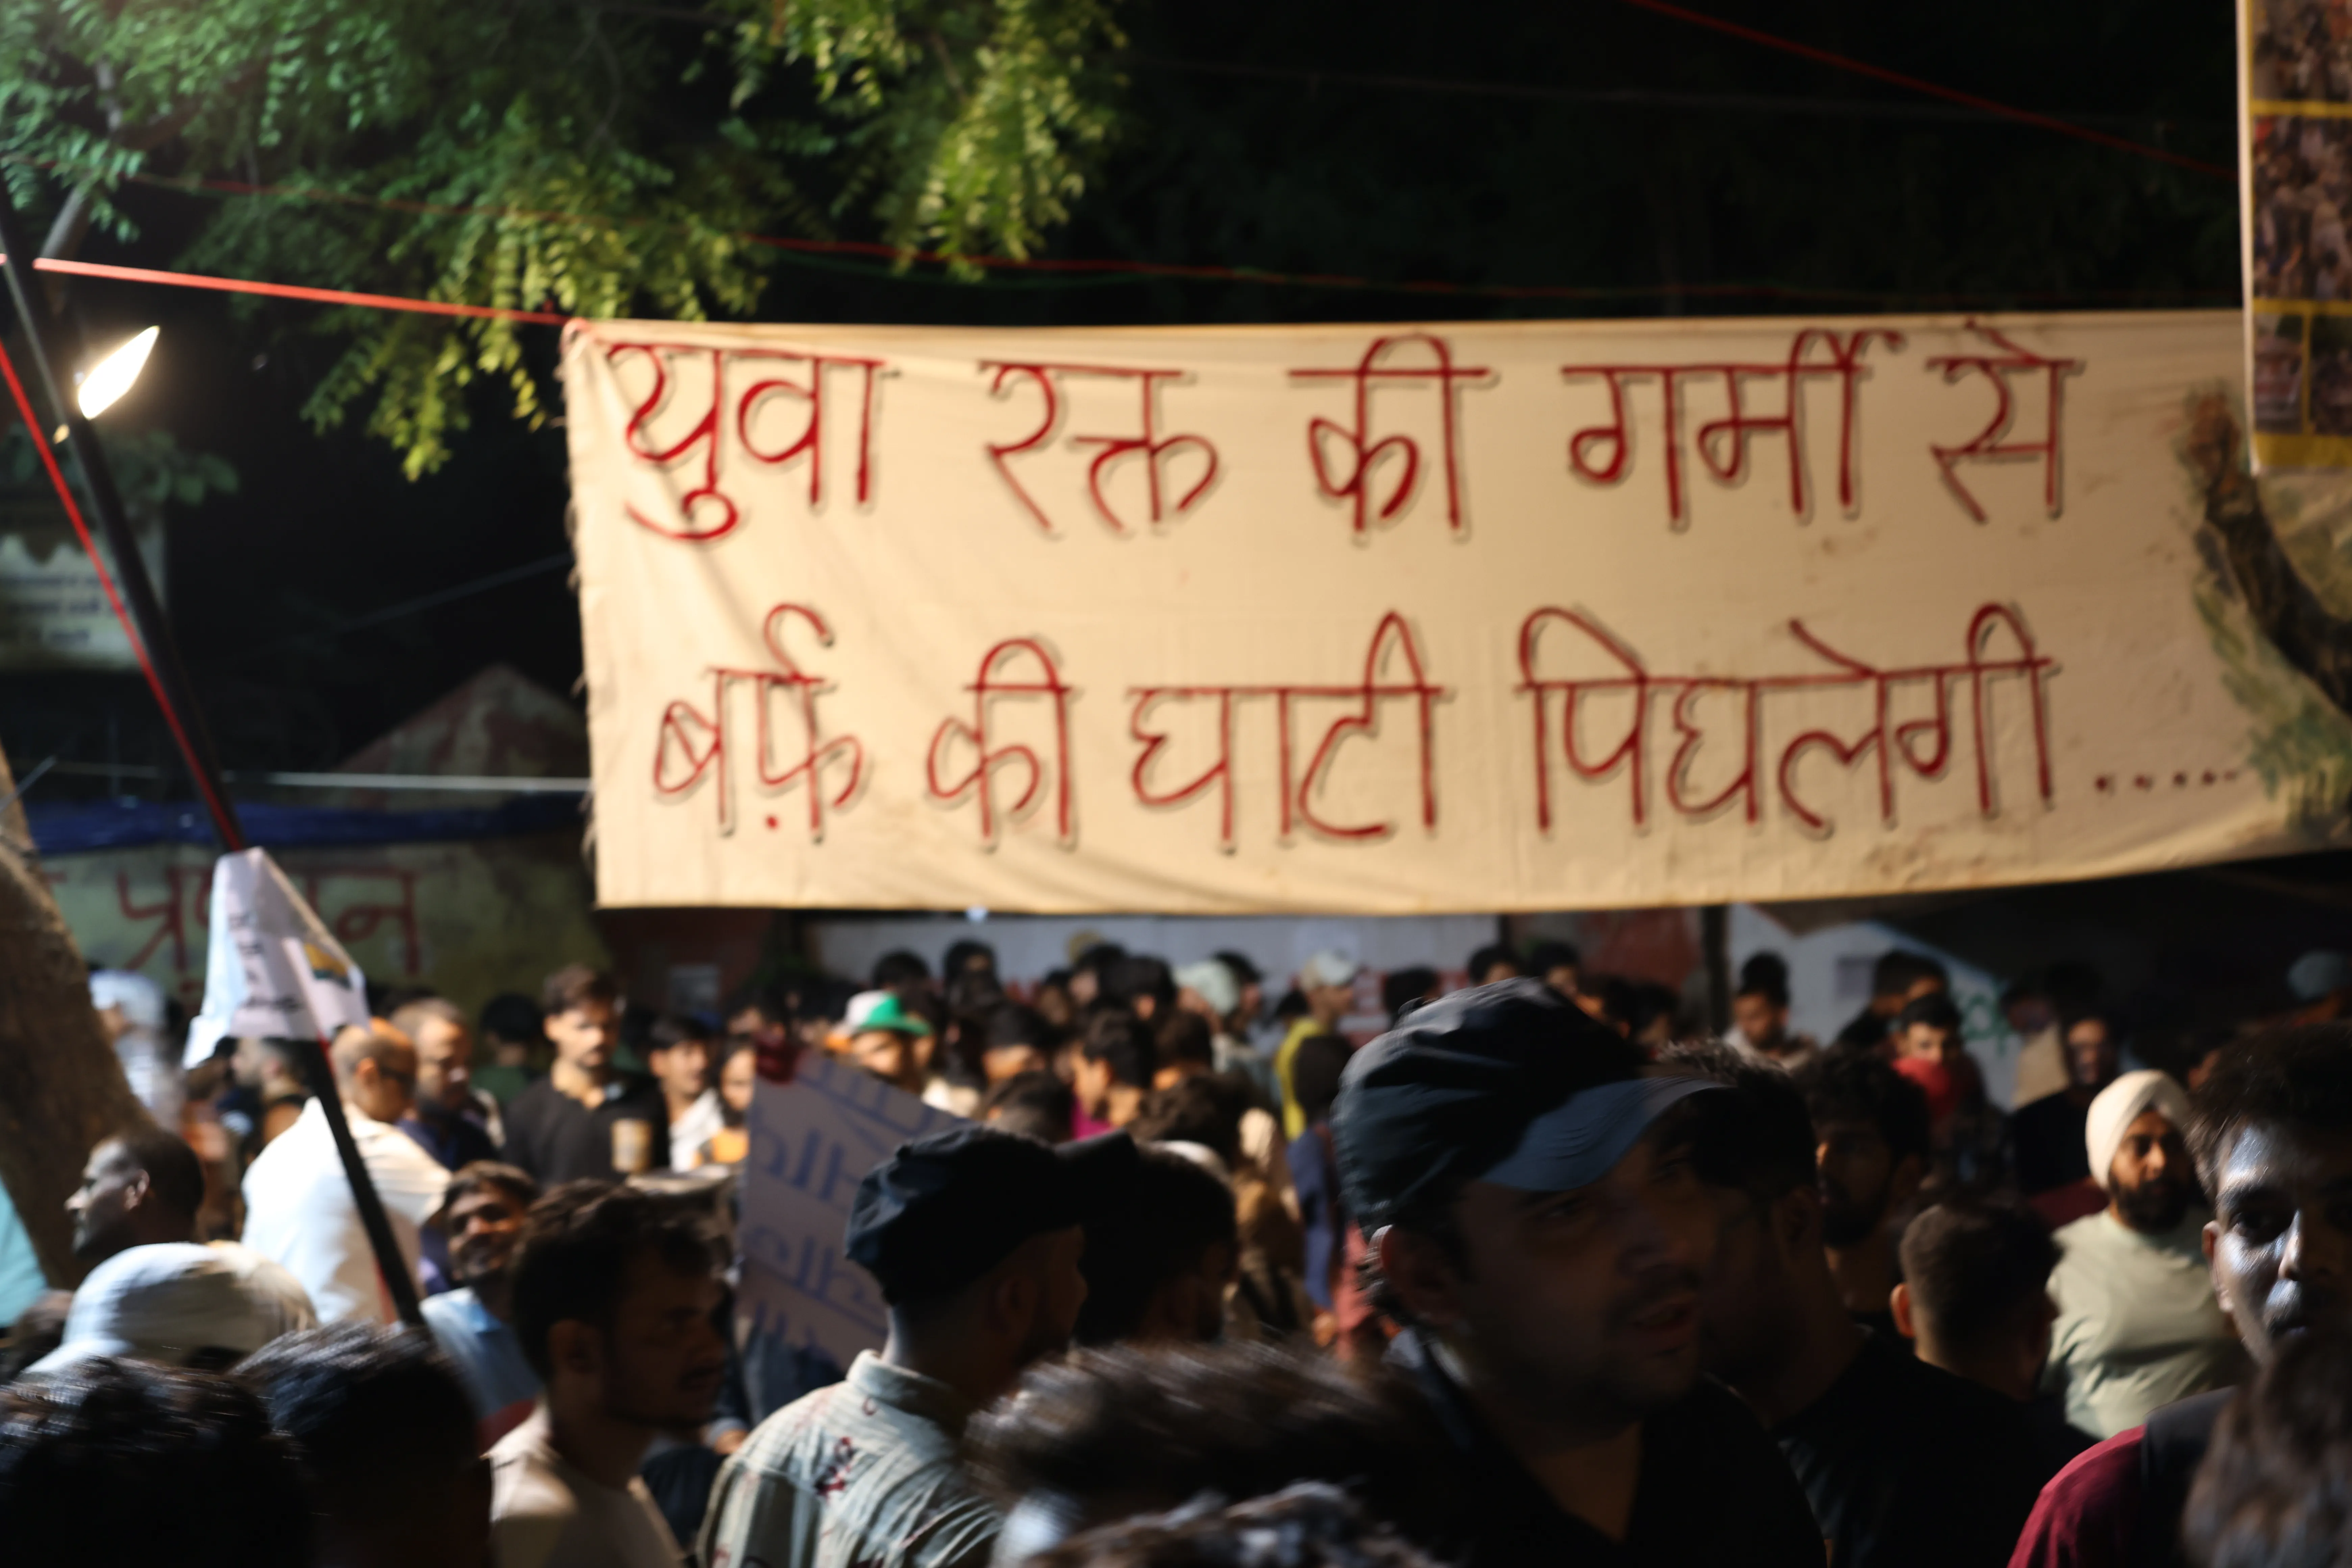 युवा रक्त की गर्मी से
बर्फ़ की घाटी पिघलेगी .....